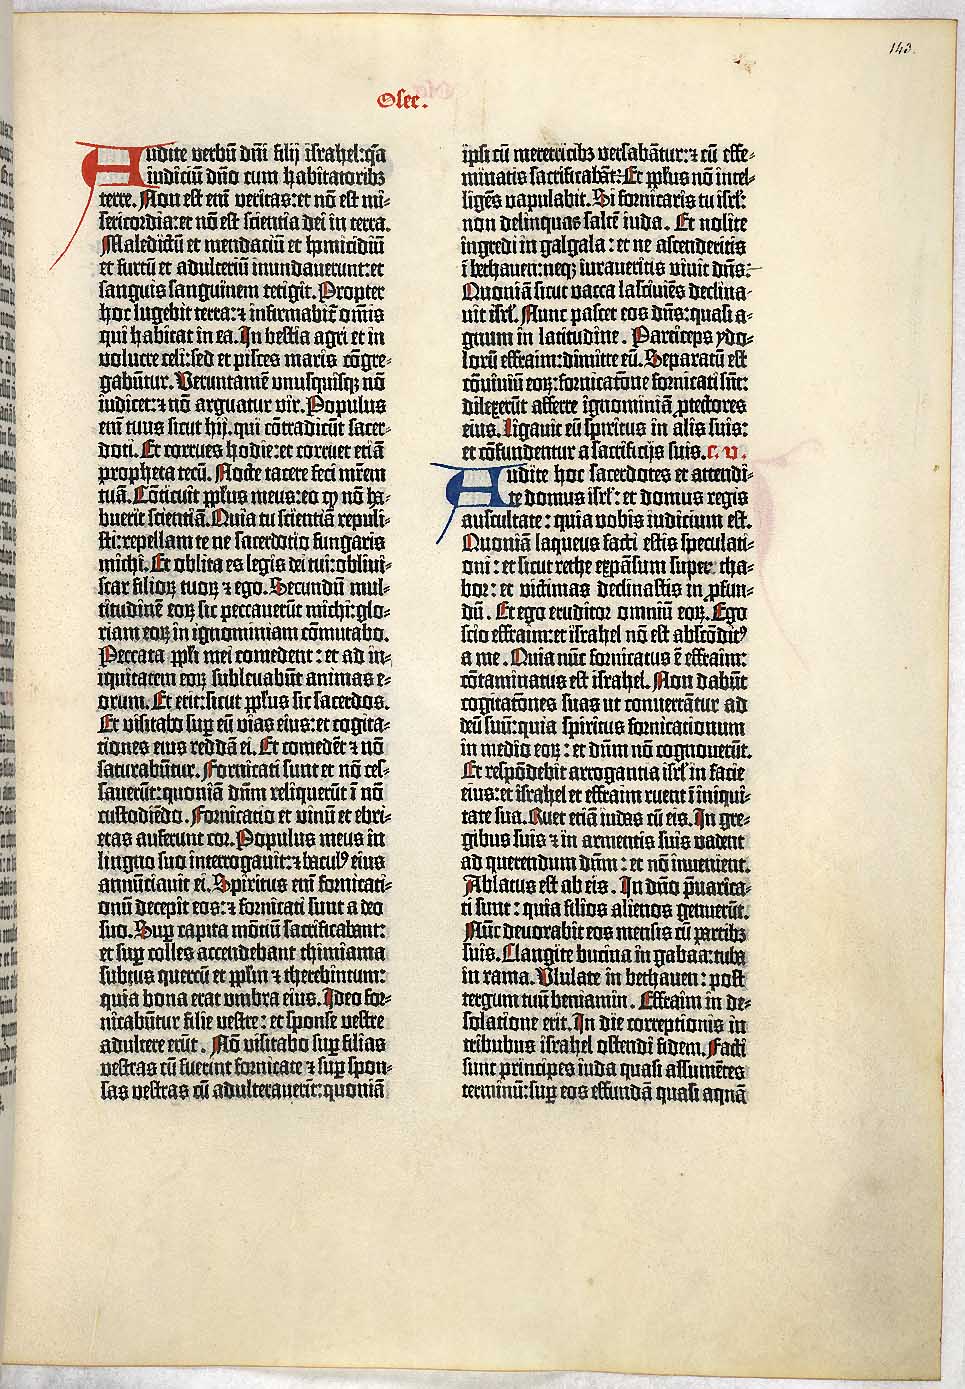 143.
Osee.
Audite verbū dn̄i filij israhel:q̄a
iudiciū dn̄o cum habitatoribꝫ
terre. Non est em̄ veritas:et nō est mi-
sericordia:et nō est scientia dei in terra.
Maledictū et mendaciū et homicidiū
et furtū et adulteriū inundauerunt:et
sanguis sanguinem tetigit. Propter
hoc lugebit terra:⁊ infirmabit̄ om̄is
qui habitat in ea. In bestia agri et in
volucre celi:sed et pisces maris cōgre-
gabūtur. Veruntamē vnusquisqꝫ nō
iudicet:⁊ nō arguatur vir. Populus
em̄ tuus sicut hij.qui cōtradicūt sacer-
doti. Et corrues hodie:et corruet etiā
propheta tecū. Nocte tacere feci mr̄em
tuā. Cōticuit ꝓpl̄us meus:eo ꝙ nō ha-
buerit scientiā. Quia tu sciētiā repuli-
sti:repellam te ne sacerdotio fungaris
michi. Et oblita es legis dei tui:obliui-
scar filioꝝ tuoꝝ ⁊ ego. Secundū mul-
titudinē eoꝝ sic peccauerūt michi:glo-
riam eoꝝ in ignominiam cōmutabo.
Peccata pp̄li mei comedent : et ad in-
iquitatem eoꝝ subleuabūt animas e-
orum. Et erit:sicut pp̄lus sic sacerdos.
Et visitabo suꝑ eū vias eius:et cogita-
tiones eius reddā ei. Et comedēt ⁊ nō
saturabūtur. Fornicati sunt et nō ces-
sauerūt:quoniā dn̄m reliquerūt ī nō
custodiēdo. Fornicatio et vinū et ebri-
etas auferunt cor. Populus meus in
ligno suo interrogauit:⁊ baculꝰ eius
annūciauit ei. Spiritus em̄ fornicati-
onū decepit eos:⁊ fornicati sunt a deo
suo. Suꝑ capita mōtiū sacrificabant:
et suꝑ colles accendebant thimiama
subtus quercū et pp̄lm ⁊ therebintum:
quia bona erat vmbra eius. Ideo for-
nicabūtur filie vestre : et sponse vestre
adultere erūt . Nō visitabo suꝑ filias
vestras cū fuerint fornicate ⁊ suꝑ spon-
sas vestras cū adulterauerīt:quoniā
ipsi cū meretricibꝫ versabātur:⁊ cū effe-
minatis sacrificabāt:Et pp̄lus nō intel-
ligēs vapulabit. Si fornicaris tu isrl̄:
non delinquas saltē iuda . Et nolite
ingredi in galgala : et ne ascenderitis
ī bethauen:neqꝫ iuraueritis viuit dn̄s:
Quoniā sicut vacca lasciuiēs declina-
uit isrl̄. Nunc pascet eos dn̄s:quasi a-
gnum in latitudine . Particeps ydo-
lorū effraim:dimitte eū. Separatū est
cōuiuiū eoꝝ:fornicatōne fornicati sūt:
dilexerūt afferre ignominiā ꝓtectores
eius. Ligauit eū spiritus in alis suis:
et cōfundentur a sacrificijs suis. c. v.
Audite hoc sacerdotes et attendi-
te domus isrl̄ : et domus regis
auscultate : quia vobis iudicium est.
Quoniā laqueus facti estis speculati-
oni : et sicut rethe expāsum super tha-
bor : et victimas declinastis in ꝓfun-
dū . Et ego eruditor omniū eoꝝ. Ego
scio effraim:et israhel nō est abscōditꝰ
a me . Quia nūc fornicatus ē effraim:
cōtaminatus est israhel. Non dabūt
cogitatōnes suas ut conuertātur ad
deū suū:quia spiritus fornicationum
in medio eoꝝ : et dn̄m nō cognouerūt.
Et respōdebit arrogantia isrl̄ in facie
eius:et israhel et effraim ruent ī iniqui-
tate sua. Ruet etiā iudas cū eis. In gre-
gibus suis ⁊ in armentis suis vadent
ad querendum dn̄m : et nō inuenient.
Ablatus est ab eis . In dn̄o p̄uarica-
ti sunt : quia filios alienos genuerūt.
Nūc deuorabit eos mensis cū partibꝫ
suis. Clangite bucina in gabaa:tuba
in rama. Vlulate in bethauen : post
tergum tuū beniamin . Effraim in de-
solatione erit. In die correptionis in
tribubus israhel ostendi fidem. Facti
sunt principes iuda quasi assumētes
terminū:suꝑ eos effundā quasi aquā